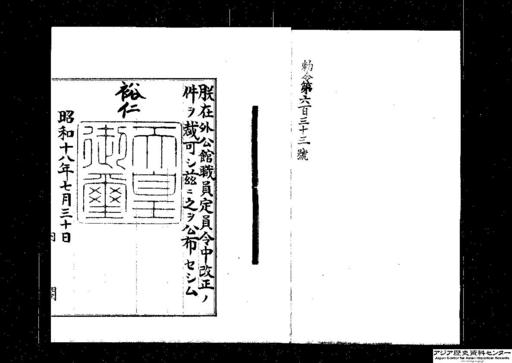 勅令第六百三十三號
朕在外公館職員定員令中改正ノ
件ヲ裁可シ茲ニ之ヲ公布セシム
裕仁
天皇
御璽
昭和十八年七月三十日
内閣
アジア歴史資料センター
Japan Center for Asian Historical Records